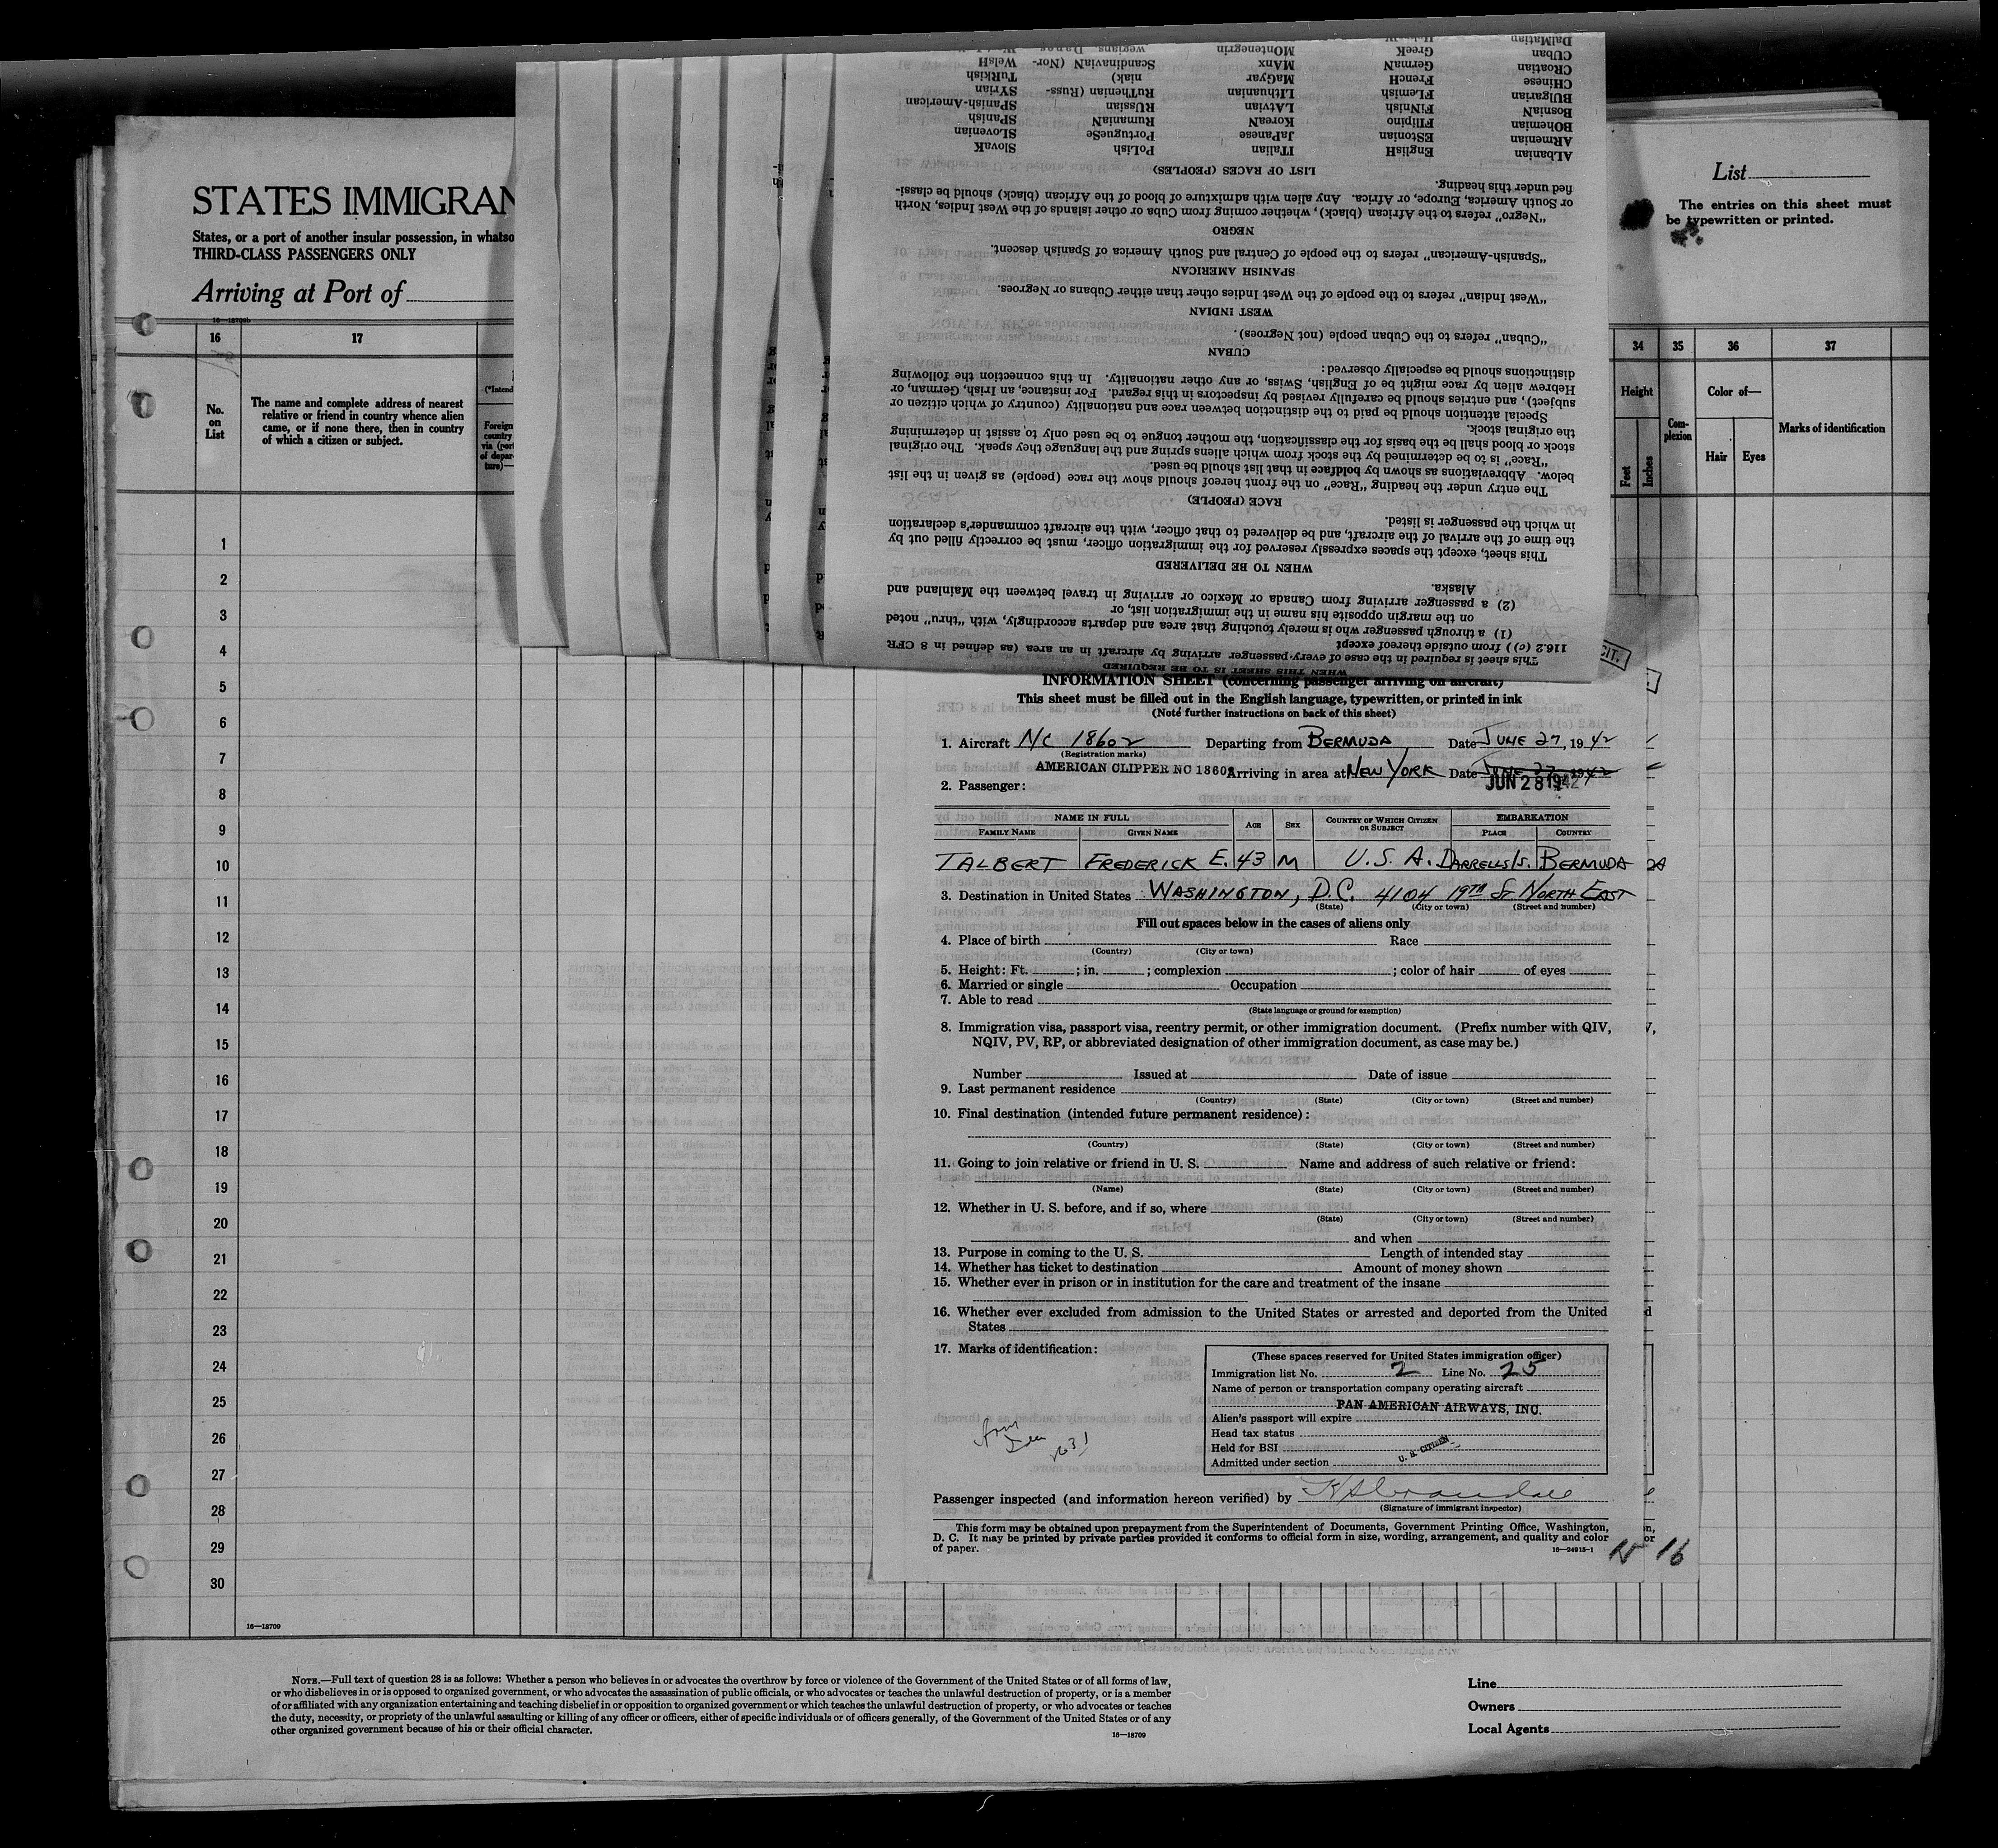 STATES IMMIGRAN
States, or a port of another insular possession, in whatso
THIRD-CLASS PASSENGERS ONLY
Arriving at Port of
List
The entries on this sheet must
be typewritten or printed.
16 17
No. on List
The name and complete address of nearest
relative or friend in country whence alien
came, or if none there, then in country
of which a citizen or subject.
(*Intend
Foreign
country
via (port
of depar-
ture)—
34 35 36 37
Height
Feet
Inches
Com-
plexion
Color of—
Hair Eyes
Marks of identification
1
2
3
4
5
6
7
8
9
10
11
12
13
14
15
16
17
18
19
20
21
22
23
24
25
26
27
28
29
30
16—18709
WHEN THIS SHEET IS TO BE REQUIRED
This sheet is required in the case of every passenger arriving by aircraft in an area (as defined in 8 CFR
116.2 (c)) from outside thereof except
(1) a through passenger who is merely touching that area and departs accordingly, with "thru" noted
on the margin opposite his name in the immigration list, or
(2) a passenger arriving from Canada or Mexico or arriving in travel between the Mainland and
Alaska.
WHEN TO BE DELIVERED
This sheet, except the spaces expressly reserved for the immigration officer, must be correctly filled out by
the time of the arrival of the aircraft, and be delivered to that officer, with the aircraft commander's declaration
in which the passenger is listed.
RACE (PEOPLE)
The entry under the heading "Race" on the front hereof should show the race (people) as given in the list
below. Abbreviations as shown by boldface in that list should be used.
"Race" is to be determined by the stock from which aliens spring and the language they speak. The original
stock or blood shall be the basis for the classification, the mother tongue to be used only to assist in determining
the original stock.
Special attention should be paid to the distinction between race and nationality (country of which citizen or
subject), and entries should be carefully revised by inspectors in this regard. For instance, an Irish, German, or
Hebrew alien by race might be of English, Swiss, or any other nationality. In this connection the following
distinctions should be especially observed:
CUBAN
"Cuban" refers to the Cuban people (not Negroes).
WEST INDIAN
"West Indian" refers to the people of the West Indies other than either Cubans or Negroes.
SPANISH AMERICAN
"Spanish-American" refers to the people of Central and South America of Spanish descent.
NEGRO
"Negro" refers to the African (black), whether coming from Cuba or other islands of the West Indies, North
or South America, Europe, or Africa. Any alien with admixture of blood of the African (black) should be classi-
fied under this heading.
LIST OF RACES (PEOPLES)
ALbanian EnglisH ITalian PoLish SlovaK
ARmenian ESTonian JaPanese PortugueSe SLOvenian
BOHemian FIlipino KoreaN RumaniaN SPanish
BosniaN FiNnish LATvian RUssian SPanish-American
BUlgarian FLemish LIthuanian RuThenian (Russ- SYrian
CHinese FrencH MaGyar niak) TuRKish
CRoatian GermaN MAnx ScandinaviaN (Nor- WelsH
CUban GreeK MOntenegrin wegians, Danes
DalMatian
INFORMATION SHEET (concerning passenger arriving on aircraft)
This sheet must be filled out in the English language, typewritten, or printed in ink
(Note further instructions on back of this sheet)
1. Aircraft NC 18602 Departing from BERMUDA Date JUNE 27, 1942
(Registration marks)
AMERICAN CLIPPER NC 18602 Arriving in area at NEW YORK Date JUNE 27 1942
JUN 28 1942
2. Passenger:
NAME IN FULL AGE SEX COUNTRY OF WHICH CITIZEN OR SUBJECT EMBARKATION
FAMILY NAME GIVEN NAME PLACE COUNTRY
TALBERT FREDERICK E. 43 M U.S.A. DARRELLS IS. BERMUDA
3. Destination in United States WASHINGTON, D.C. 4104 19TH ST NORTH EAST
(State) (City or town) (Street and number)
Fill out spaces below in the cases of aliens only
4. Place of birth Race
(Country) (City or town)
5. Height: Ft. ; in. ; complexion ; color of hair of eyes
6. Married or single Occupation
7. Able to read
(State language or ground for exemption)
8. Immigration visa, passport visa, reentry permit, or other immigration document. (Prefix number with QIV,
NQIV, PV, RP, or abbreviated designation of other immigration document, as case may be.)
Number Issued at Date of issue
9. Last permanent residence
(Country) (State) (City or town) (Street and number)
10. Final destination (intended future permanent residence):
(Country) (State) (City or town) (Street and number)
11. Going to join relative or friend in U. S. Name and address of such relative or friend:
(Name) (State) (City or town) (Street and number)
12. Whether in U. S. before, and if so, where
(State) (City or town) (Street and number)
and when
13. Purpose in coming to the U. S. Length of intended stay
14. Whether has ticket to destination Amount of money shown
15. Whether ever in prison or in institution for the care and treatment of the insane
16. Whether ever excluded from admission to the United States or arrested and deported from the United
States
17. Marks of identification:
(These spaces reserved for United States immigration officer)
Immigration list No. 2 Line No. 25
Name of person or transportation company operating aircraft
PAN AMERICAN AIRWAYS, INC.
Alien's passport will expire
Head tax status
Held for BSI
Admitted under section
U. S. CITIZEN
Passenger inspected (and information hereon verified) by
(Signature of immigrant inspector)
This form may be obtained upon prepayment from the Superintendent of Documents, Government Printing Office, Washington,
D. C. It may be printed by private parties provided it conforms to official form in size, wording, arrangement, and quality and color
of paper.
16—24915-1
15 16
NOTE.—Full text of question 28 is as follows: Whether a person who believes in or advocates the overthrow by force or violence of the Government of the United States or of all forms of law,
or who disbelieves in or is opposed to organized government, or who advocates the assassination of public officials, or who advocates or teaches the unlawful destruction of property, or is a member
of or affiliated with any organization entertaining and teaching disbelief in or opposition to organized government or which teaches the unlawful destruction of property, or who advocates or teaches
the duty, necessity, or propriety of the unlawful assaulting or killing of any officer or officers, either of specific individuals or of officers generally, of the Government of the United States or of any
other organized government because of his or their official character.
16—18709
Line
Owners
Local Agents